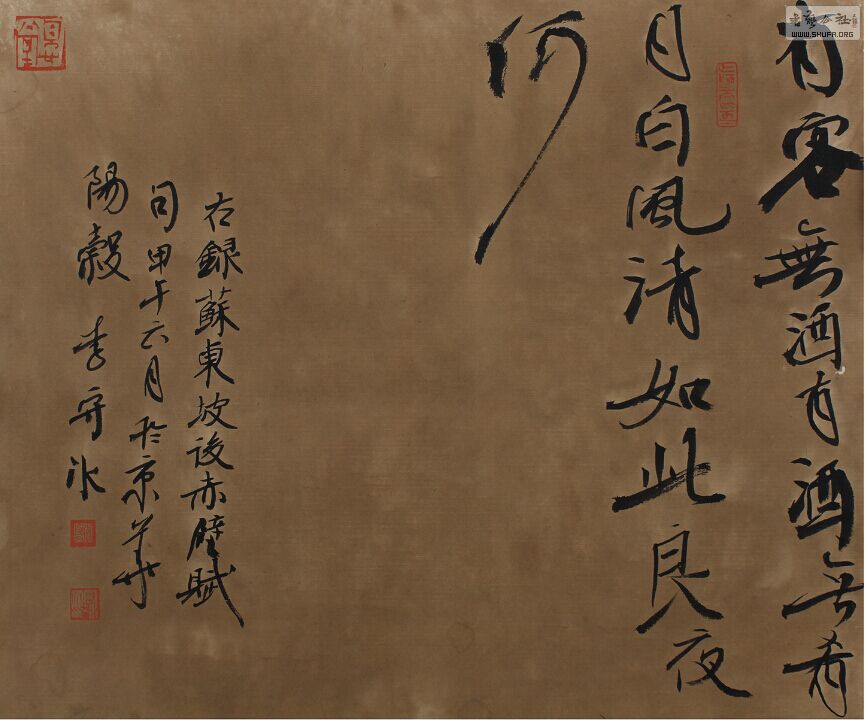 書藝公社
WWW.SHUFA.ORG
有客無酒有酒無肴
月白風清如此良夜
何
右録蘇東坡後赤壁賦
句甲午六月於京華
陽穀李守冰